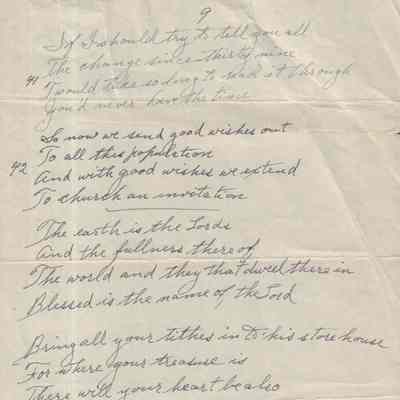 9
If I should try to tell you all
the change since thirty nine
41
'Twould take so long to read it through
You'd never have the time
So now we send good wishes out
42
To all this population
And with good wishes we extend
To church an invitation
The earth is the Lords
And the fullness there of
The world and they that dwell there in
Blessed is the name of the Lord
Bring all your tithes in to his store house
For where your treasure is
There will your heart be also